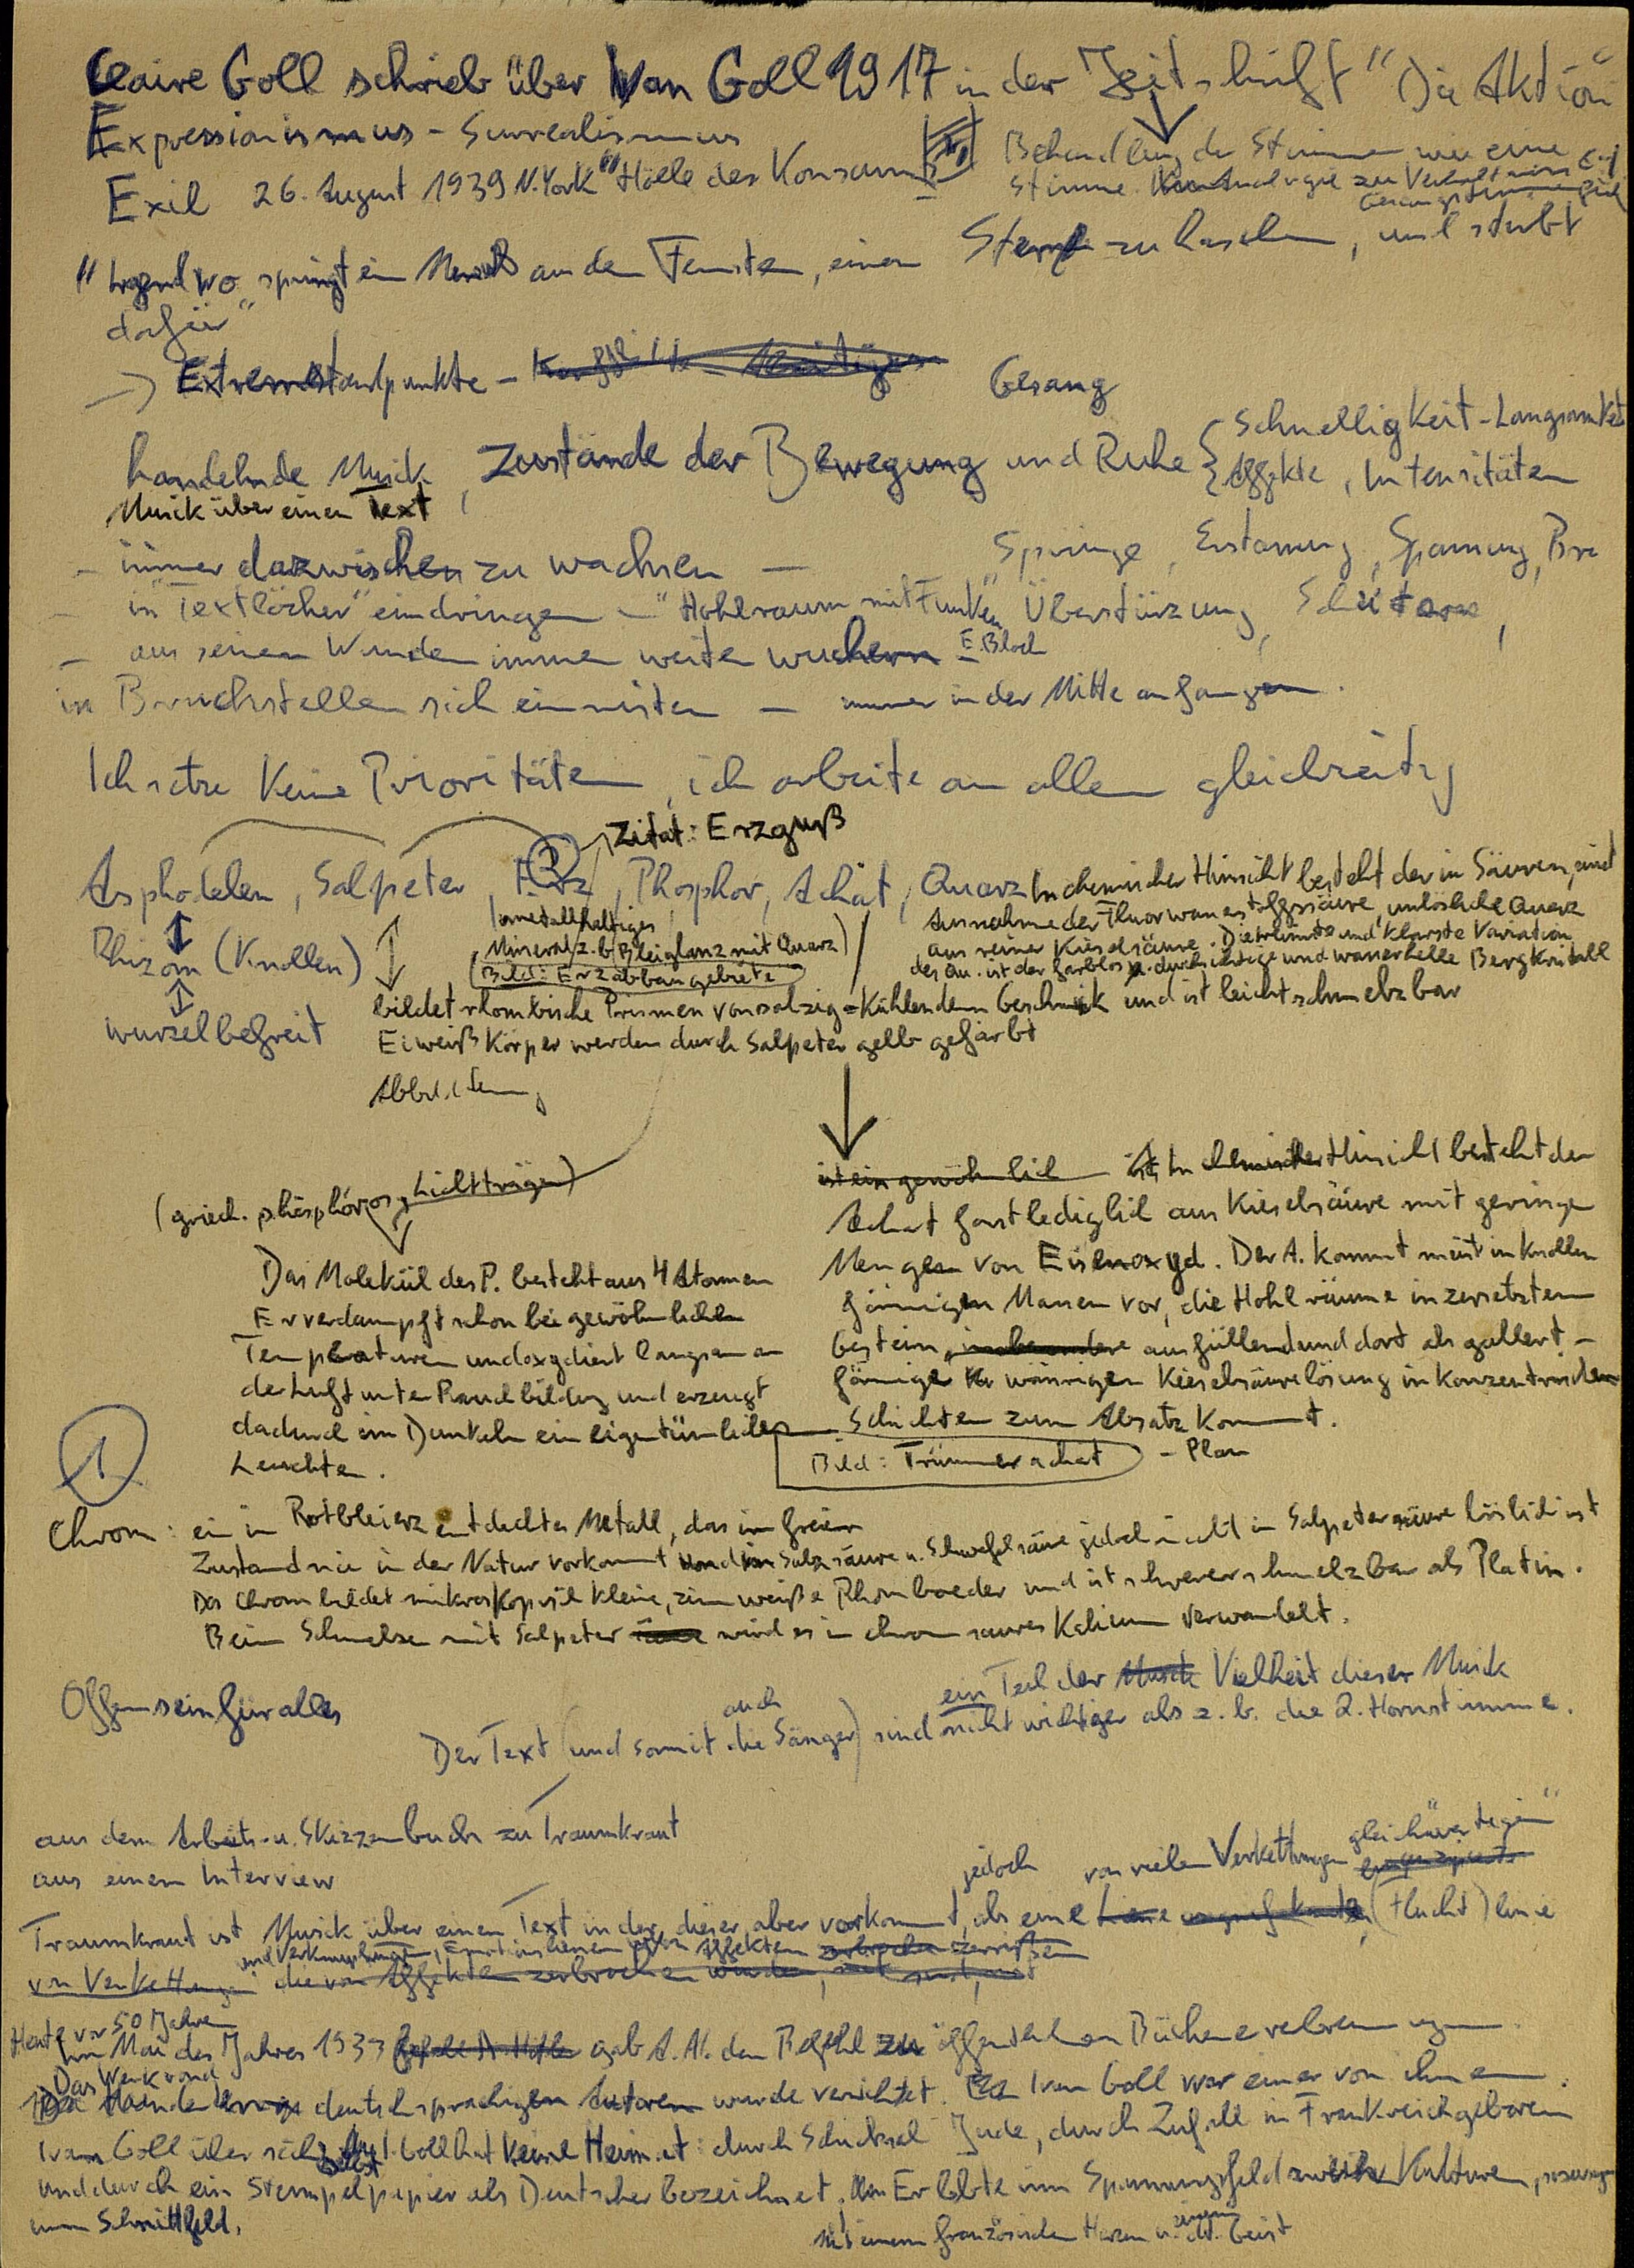 Claire Goll schrieb über Ivan Goll 1917 in der Zeitschrift "Die Aktion"
Expressionismus - Surrealismus
Exil 26. August 1939 N.York "Hölle des Konsums"
Behandlung der Stimmen wie eine
Stimme. Analogie zu
"Irgendwo springt ein Mensch an den Fenstern, einen Stern zu haschen, und stirbt
dafür"
→ Extremstandpunkte -
Gesang
handelnde Musik, Zustände der Bewegung und Ruhe { Schnelligkeit - Langsamkeit
Affekte, Intensitäten
Musik über einen Text
- immer dazwischen zu wachsen -
Sprünge, Erstarrung, Spannung,
- in "Textlöcher" eindringen - "Hohlraum mit Funken" E. Bloch
Überstürzung,
- aus seinen Wunden immer weiter wuchern -
in Bruchstellen sich einnisten - immer in der Mitte anfangen.
Ich setze keine Prioritäten, ich arbeite an allem gleichzeitig
Zitat: Erzguß
Asphodelen, Salpeter, Erz, Phosphor, Achat, Quarz
In chemischer Hinsicht besteht der in Säuren, mit
Ausnahme der Fluorwasserstoffsäure, unlösliche Quarz
aus reiner Kieselsäure. Die reinste und klarste Variation
des Qu. ist der farblos, u. durchsichtige und wasserhelle Bergkristall
(metallhaltiges
Mineral z.b. Bleiglanz mit Quarz)
Bild: Erzabbaugebiete
Rhizom (Knollen)
wurzelbefreit
bildet rhombische Prismen von salzig-kühlendem Geschmack und ist leicht schmelzbar
Eiweißkörper werden durch Salpeter gelb gefärbt
Abbildung
(griech. phosphóros, Lichtträger)
Das Molekül des P. besteht aus 4 Atomen
Er verdampft schon bei gewöhnlichen
Temperaturen und oxydiert langsam an
der Luft unter Rauchbildung und erzeugt
dadurch im Dunkeln ein eigentümliches
Leuchten.
ist ein gewöhnlich ist In chemischer Hinsicht besteht der
Achat fast lediglich aus Kieselsäure mit geringen
Mengen von Eisenoxyd. Der A. kommt meist in knollen
förmigen Massen vor, die Hohlräume in zersetztem
Gestein, insbesondere ausfüllend und dort als gallert-
förmige wässrigen Kieselsäurelösung in konzentrischen
Schichten zum Absatz kommt.
Bild: Trümmerachat - Plan
1
Chrom: ein in Rotbleierz entdecktes Metall, das im freien
Zustand nie in der Natur vorkommt und in Salzsäure u. Schwefelsäure jedoch nicht in Salpetersäure löslich ist
Das Chrom bildet mikroskopisch kleine, zinnweiße Rhomboeder und ist schwerer schmelzbar als Platin.
Beim Schmelzen mit Salpeter wird es in chromsaures Kalium verwandelt.
Offensein für alles
Der Text (und somit auch die Sänger) sind ein Teil der Musik Vielheit dieser Musik
nicht wichtiger als z.b. die 2. Hornstimme.
aus dem Arbeits- u. Skizzenbuch zu Traumkraut
aus einem Interview
jedoch von vielen Verkettungen "gleichwertigen"
Traumkraut ist Musik über einen Text in der dieser aber vorkommt, als eine Linie (Flucht)linie
und Verknüpfungen, von Affekten zerrissen
von Verkettungen die von Affekten zerbrochen wurden,
Heute vor 50 Jahren
im Mai des Jahres 1933 gab A.H. den Befehl zu öffentlichen Bücherverbrennungen.
Das Werk von
deutschsprachigen Autoren wurde vernichtet. Ivan Goll war einer von ihnen.
Ivan Goll über sich selbst: I. Goll hat keine Heimat: durch Schicksal Jude, durch Zufall in Frankreich geboren
und durch ein Stempelpapier als Deutscher bezeichnet. Er lebte im Spannungsfeld zweier Kulturen, sozusagen
im Schnittfeld,
Mit einem französischen Herzen u. einem dt. Geist